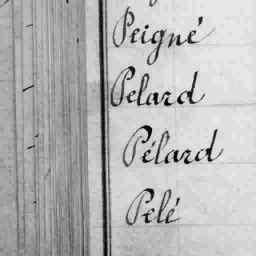 Peigné
Pelard
Pélard
Pelé